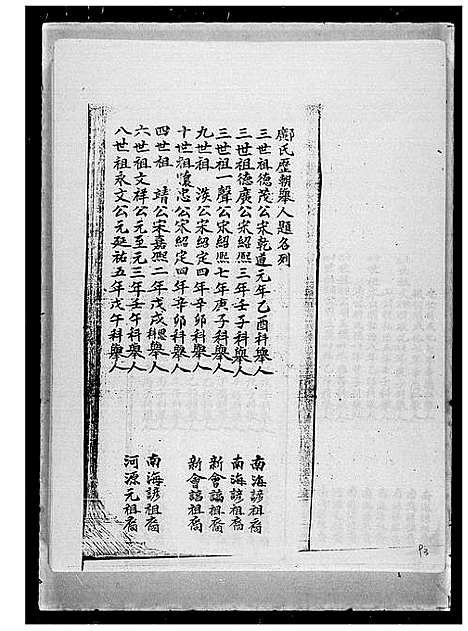 鄺氏歷朝舉人題名列
三世祖德茂公宋乾道元年乙酉科舉人 南海諺祖裔
三世祖德廣公宋紹熙三年壬子科舉人 南海諺祖裔
三世祖一聲公宋紹熙七年庚子科舉人 新會諨祖裔
九世祖 淡公宋紹定四年辛卯科舉人 新會諨祖裔
十世祖懷忠公宋紹定四年辛卯科舉人
四世祖 靖公宋嘉熙二年戊戌科舉人 南海諺祖裔
六世祖文祥公元至元三年壬午科舉人 河源元祖裔
八世祖永文公元延祐五年戊午科舉人
93